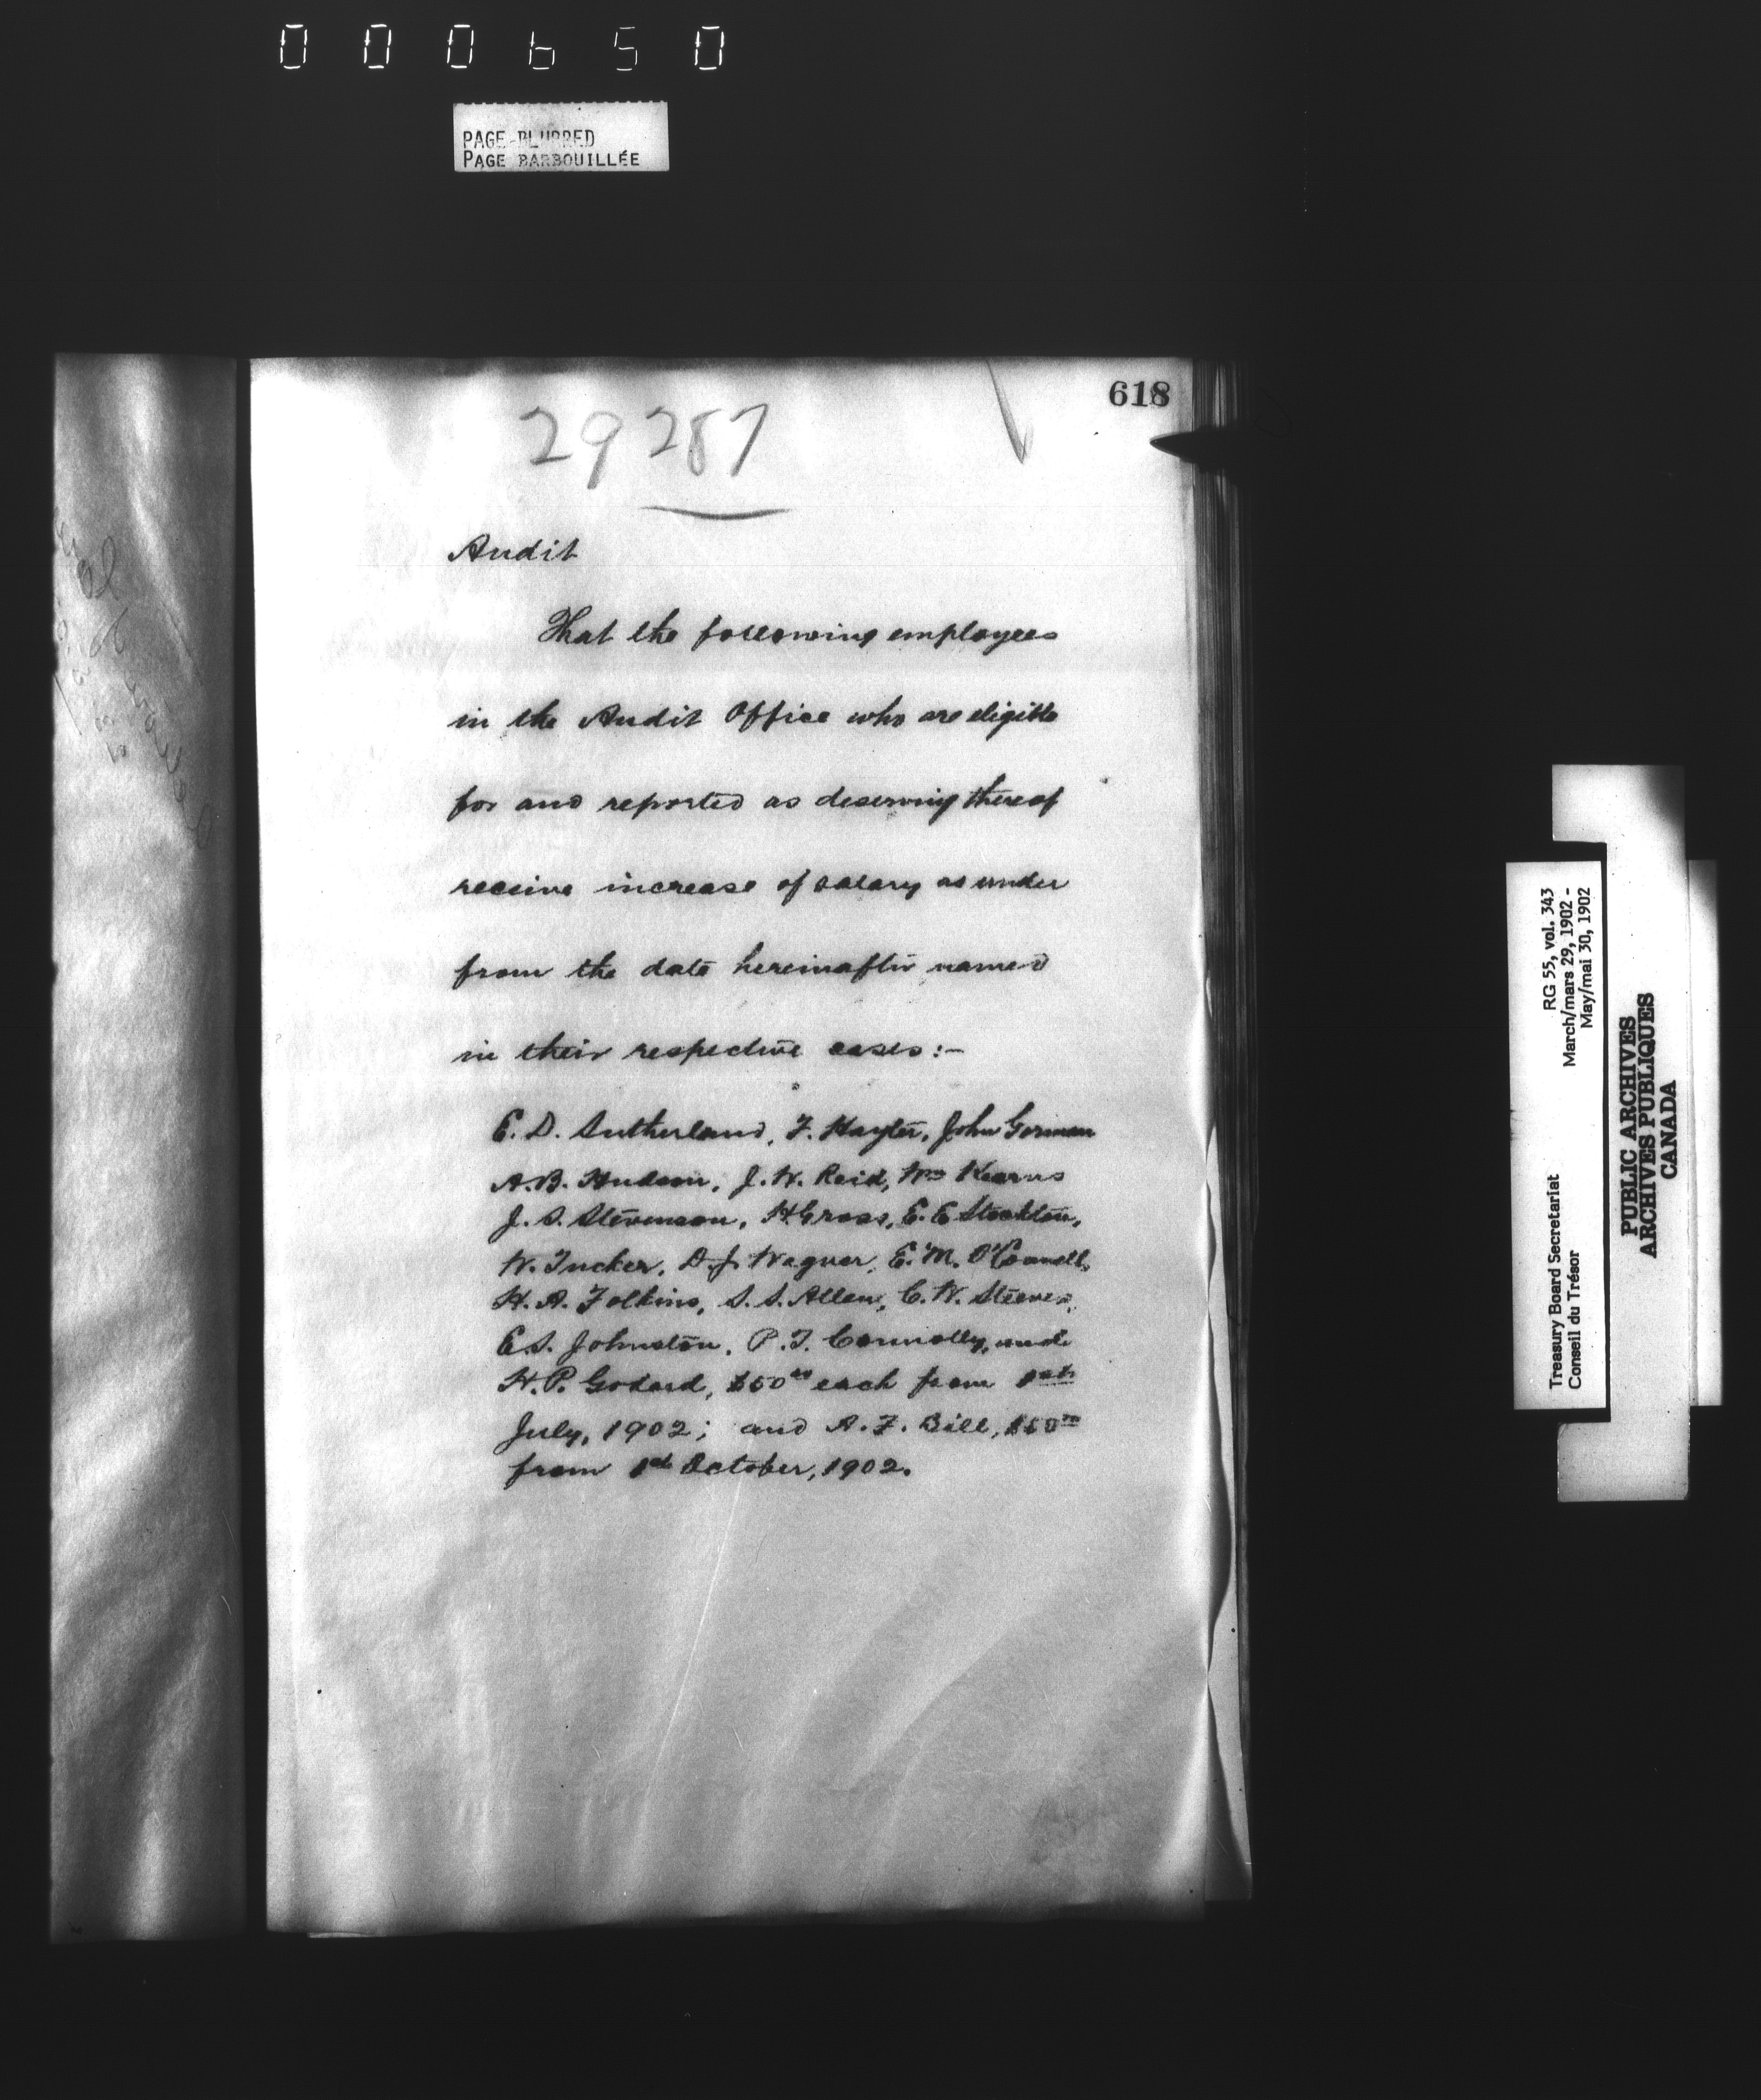 000650
PAGE BLURRED
PAGE BARBOUILLÉE
618
29287
Audit
That the following employees
in the Audit Office who are eligible
for and reported as deserving thereof
receive increase of salary as under
from the date hereinafter named
in their respective cases:-
E. D. Sutherland, F. Hayter, John Gorman
A. B. Hudson, J. W. Reid, Wm Kearns
J. S. Stevenson, H Gross, E. E Stockton,
W. Tucker, D. J. Wagner, E. M. O'Connell,
H. A. Folkins, S. S. Allen, C. W. Steeves,
E. S. Johnston, P. T. Connolly, and
H. P. Godard, $50 00 each from 1st
July, 1902; and A. F. Bill, $50 00
from 1st October, 1902.
Treasury Board Secretariat RG 55, vol. 343
Conseil du Trésor March/mars 29, 1902 -
May/mai 30, 1902
PUBLIC ARCHIVES
ARCHIVES PUBLIQUES
CANADA